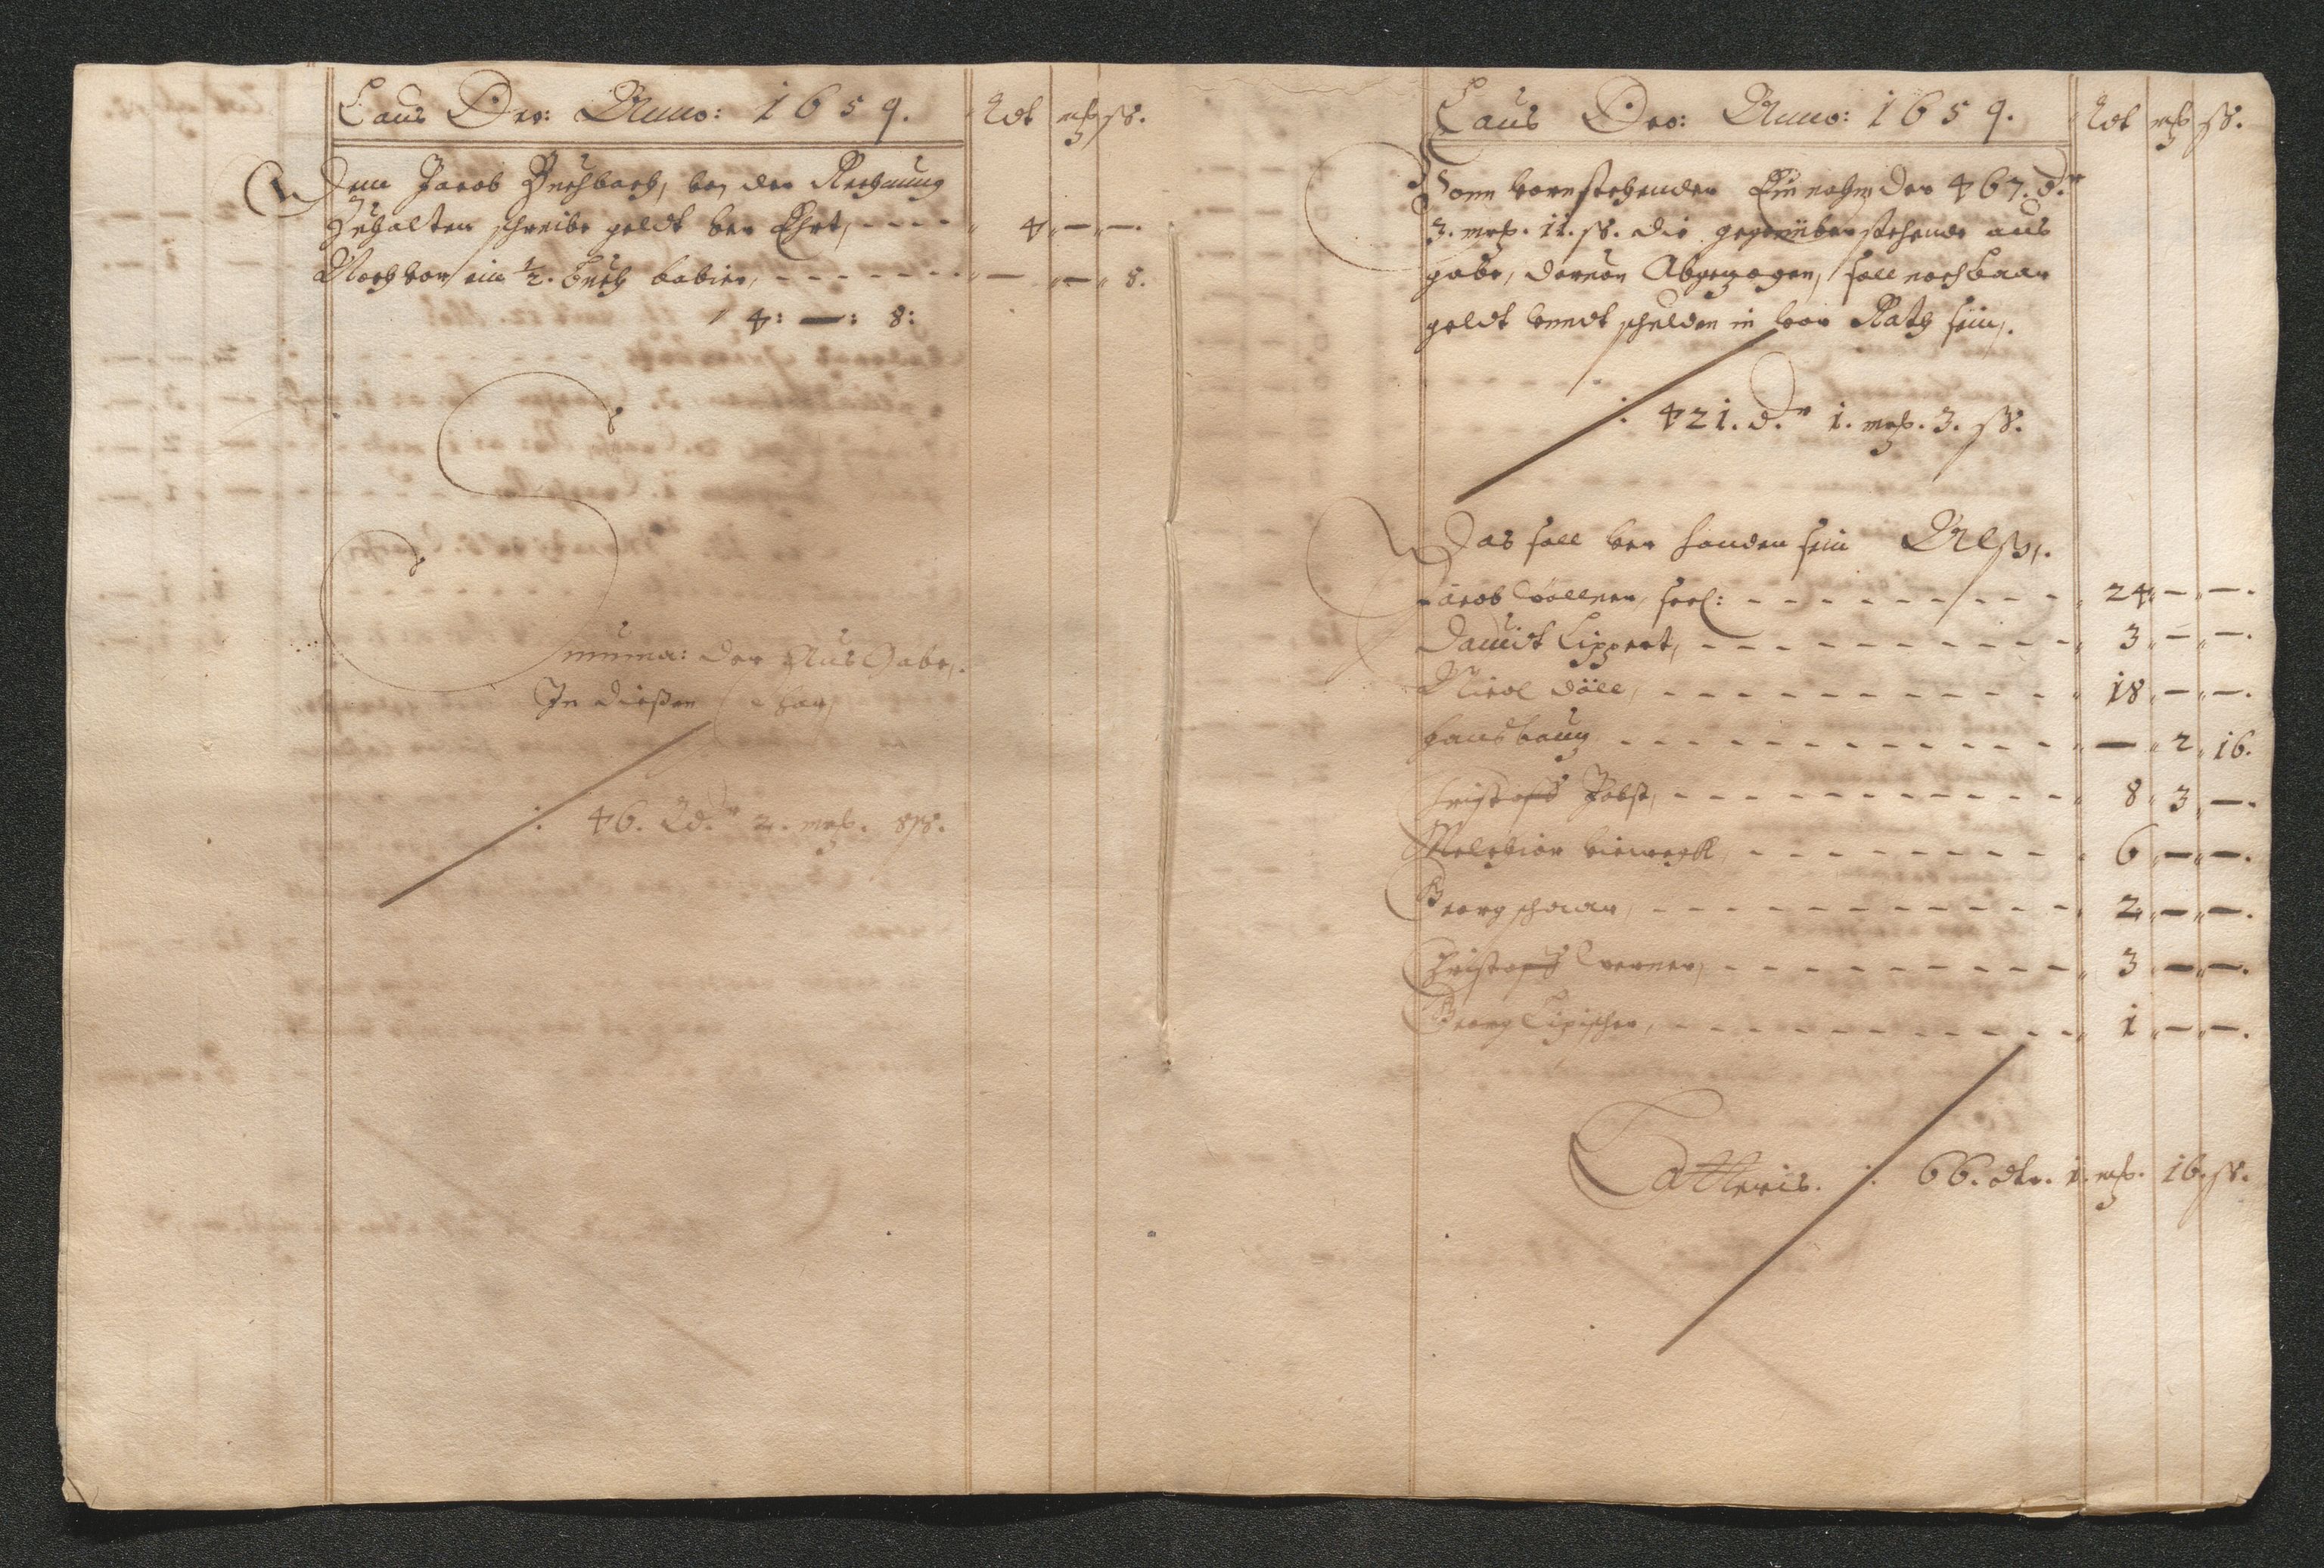 Laus Deo: Anno: 1659. Rdt mß ß.
Dem Jacob Buchbach, bey der Rechnung
Zuhalten schreibe geldt ver Ehrt, 4 — —.
Noch vor ein ½. Buch babier, — — 8.
4: —: 8:
Summa: der Aus Gabe,.
In dießen
: 46. Rdr 2. mß. 8 ß.
Laus Deo: Anno: 1659. Rdt mß ß.
Vonn vornstehender Einnahm der 467. dr
3. mß. 11. ß. die gegenüber stehende aus
gabe, dervon Abgezogen, soll noch baar
geldt vnndt schulden in vor Rath sein,.
: 421. dr 1. mß. 3. ß.
Das soll ver handen sein Alß,.
Jacob Wöllner, seel: 24 — —.
Dauidt Lippert, 3 — —.
Nicol Döll, 18 — —.
hans baum — 2 16.
Christoff Jobst, 8 3 —.
Melchior 6 — —.
Georg schaar, 2 — —.
Christoff Werner, 3 — —.
Georg Tipischer, 1 — —.
Latteris. : 66. dlr. 1. mß. 16. ß.